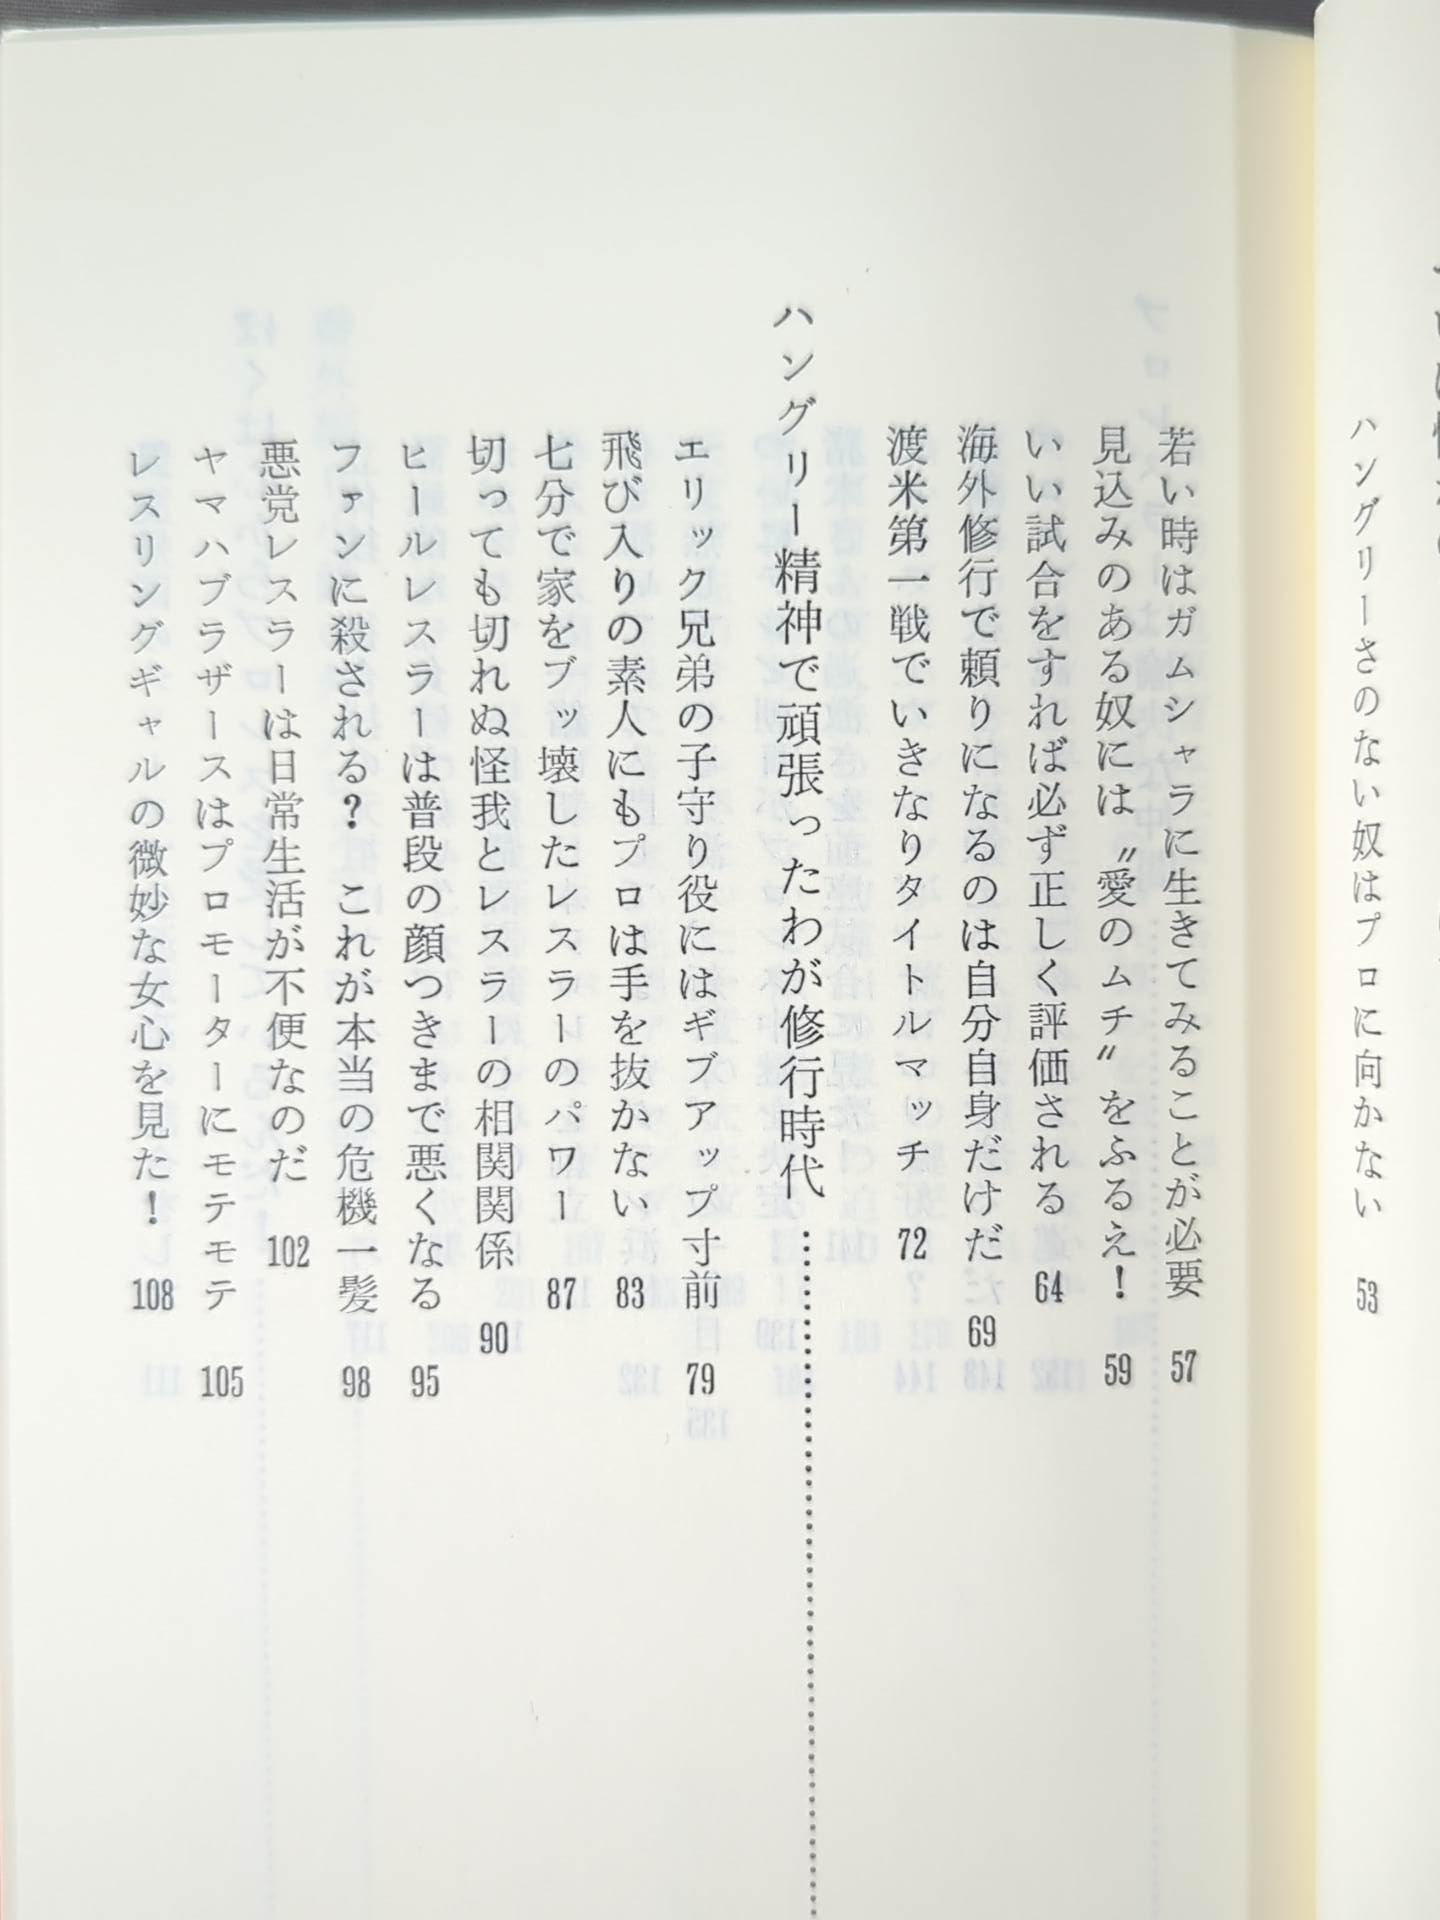 ハングリーさのない奴はプロに向かない 53
若い時はガムシャラに生きてみることが必要 57
見込みのある奴には〝愛のムチ〟をふるえ！ 59
いい試合をすれば必ず正しく評価される 64
海外修行で頼りになるのは自分自身だけだ 69
渡米第一戦でいきなりタイトルマッチ 72
ハングリー精神で頑張ったわが修行時代
エリック兄弟の子守り役にはギブアップ寸前 79
飛び入りの素人にもプロは手を抜かない 83
七分で家をブッ壊したレスラーのパワー 87
切っても切れぬ怪我とレスラーの相関関係 90
ヒールレスラーは普段の顔つきまで悪くなる 95
ファンに殺される？ これが本当の危機一髪 98
悪党レスラーは日常生活が不便なのだ 102
ヤマハブラザースはプロモーターにモテモテ 105
レスリングギャルの微妙な女心を見た！ 108